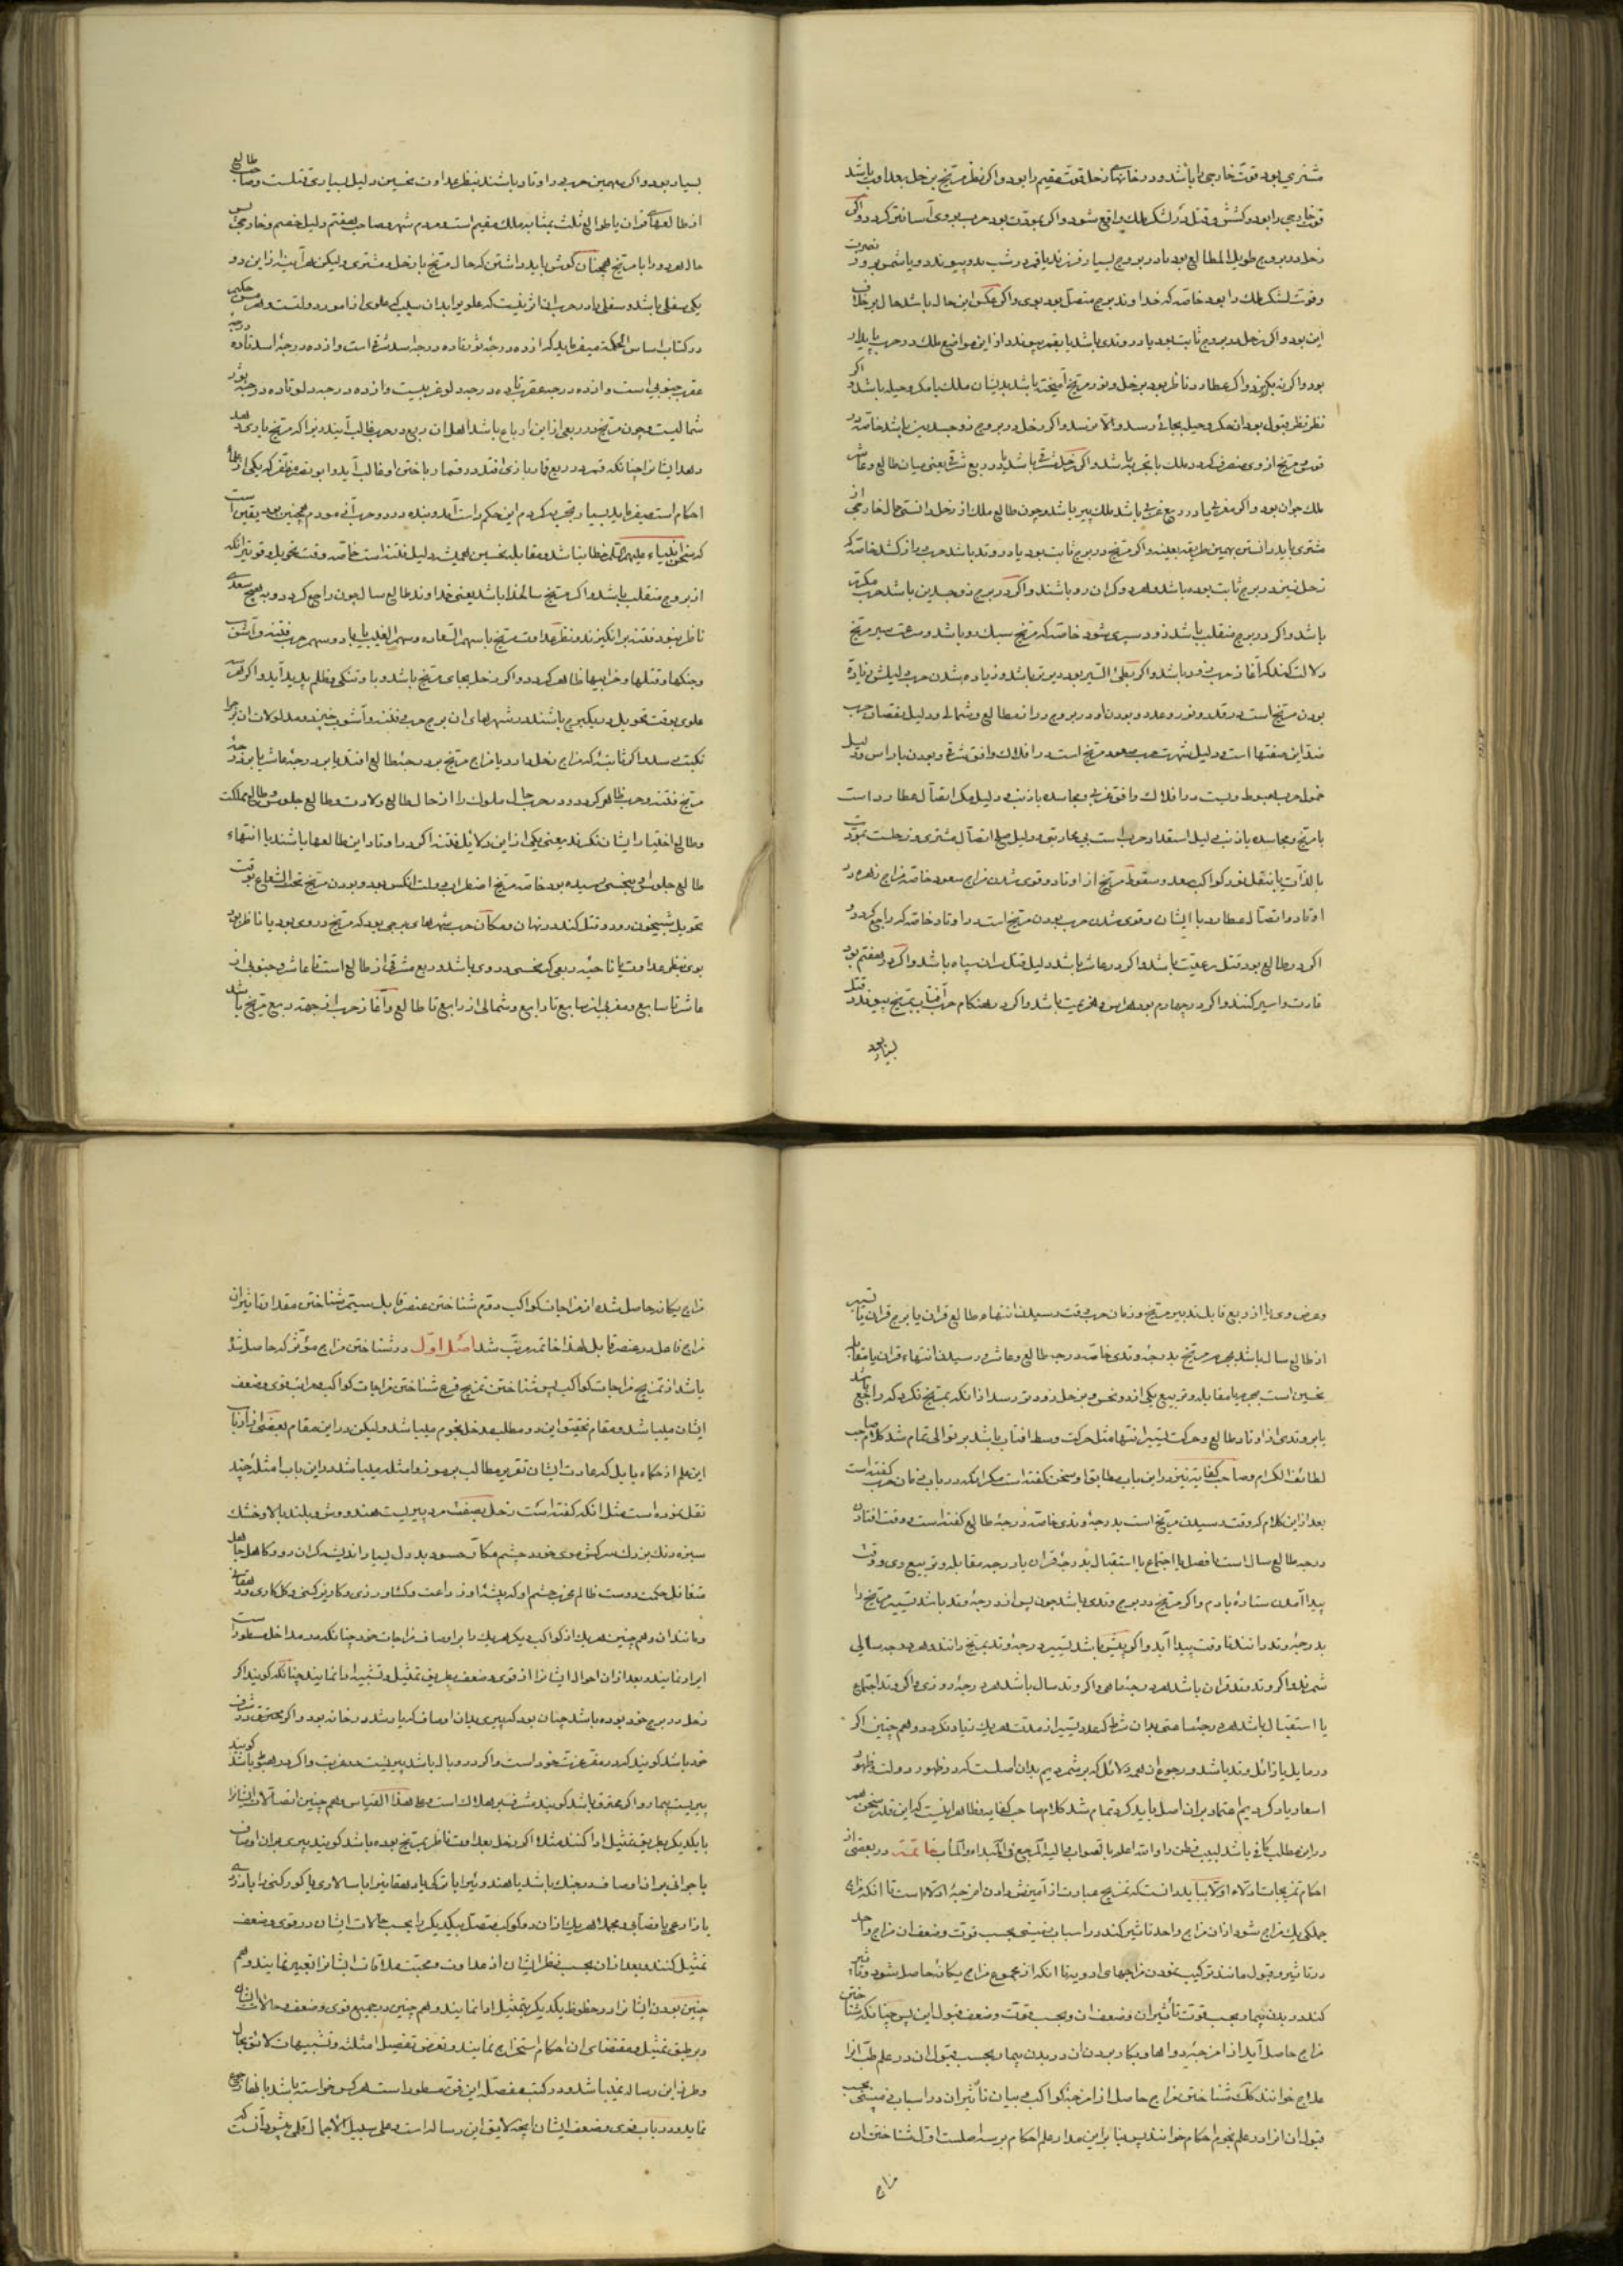 مشتری بود قوت خارجی را باشد و در خانهای زحل قوت مقیم را بود و اگر نظر مریخ بزحل بعداوت باشد
قوت خارجی را بود و کشش و قتل در لشکر ملک واقع شود و اگر بمودت بود حرب بروی آسانتر گردد و اگر
زحل در بروج طویل المطالع بود یا در بروج بسیار فرزند یا قمر در شب بدو پیوندد و یا شمس بروز نصرت
و قوت لشکر ملک را بود خاصه که خداوند برج متصل بود بوی و اگر عکس این حال باشد حال بر خلاف
این بود و اگر زحل در بروج ثابت بود یا در وتدی باشد یا بقمر پیوندد از این مواضع ملک در حرب پایدار
بود و اگر نه بگریزد و اگر عطارد ناظر بود بزحل و نور مریخ آمیخته باشد بدیشان ملک با مکر و حیله باشد و اگر
نظر نظر قبول بود آن مکر و حیله بجائی رسد و الا نرسد و اگر زحل در بروج ذو جسدین باشد خاصه در
قوس مریخ از وی منصرف گردد ملک با تجربه باشد و اگر زحل شرقی باشد یا در ربع شرقی یعنی میان طالع و عاشر
ملک جوان بود و اگر مغربی یا در ربع غربی باشد ملک پیر باشد و چون طالع ملک از زحل دانستی حال خارجی از
مشتری باید دانستن بهمین طریقه بعینه و اگر مریخ در برج ثابت بود یا در وتد باشد حرب دراز کشد خاصه که
زحل نیز در برج ثابت بوده باشد و هر دو گران رو باشند و اگر در برج ذو جسدین باشد حرب مکرر
باشد و اگر در برج منقلب باشد زود سپری شود خاصه که مریخ سبک رو باشد و سرعت سیر مریخ
دلالت کند که آغاز حرب زود باشد و اگر بطئ السیر بود دیرتر باشد و زیاده شدن حرب دلیلش زیاده
بودن مریخ است در قدر و نور و عدد و بودن او در بروج دراز مطالع و شمالی و دلیل نقصان حرب
ضد این صفتها است و دلیل شهرت حرب صعود مریخ است در افلاک و افق شرقی و بودن با راس و دلیل
خمول حرب هبوط ویست در افلاک و افق غربی و مجاسده با ذنب و دلیل مکر اتصال عطارد است
با مریخ و مجاسده با ذنب دلیل استعداد حرب است بی محاربتی و دلیل صلح اتصال مشتری و زحلست بمودت
بالذات یا بنقل نور کواکب سعد و سقوط مریخ از اوتاد و قوی شدن مزاج سعود خاصه مزاج زهره در
اوتاد و اتصال عطارد با ایشان و قوی شدن حرب بودن مریخ است در اوتاد خاصه که راجع گردد و
اگر در طالع بود قتل رعیت باشد و اگر در عاشر باشد دلیل قتل سران سپاه باشد و اگر در هفتم بود
غارت و اسیر کنند و اگر در چهارم بود هراس و هزیمت باشد و اگر در هنگام حرب آفتاب بمریخ پیوندد قتل
بسیار بود
بسیار بود و اگر بهمین حرب در اوتاد باشند بنظر عداوت نحسین دلیل بسیاری قتلست و صاحب طالع
از طالعهای قران یا طوالع ثلث بمثابه ملک مقیم است و مردم شهر و صاحب هفتم دلیل خصم و خارجی پس
حال هر دو را با مریخ همچنان گوش باید داشتن که حال مریخ با زحل و مشتری و لیکن هر آینه از این دو
یکی سفلی باشد و سفلی را در حرب آن اثر نیست که علوی را
در کتاب اساس الحکمه میفرماید که از ده درجه ثور تا ده درجه اسد شرقی است و از ده درجه اسد تا ده درجه
عقرب جنوبی است و از ده درجه عقرب تا ده درجه دلو غربیست و از ده درجه دلو تا ده درجه ثور
شمالیست و چون مریخ در ربعی از این ارباع باشد اهل آن ربع در حرب غالب آیند زیرا که مریخ یاری دهد
احکام است میفرماید بسیار تجربه کردم این حکم راست آمد و بنده در دو حرب آزمودم همچنین بود یقین است
از بروج منقلب باشد و اگر مریخ سالخدا باشد یعنی خداوند طالع سال چون راجع گردد و بهیچ سعدی
ناظر نبود فتنه برانگیزد و نظر عداوت مریخ با سهم السعاده و سهم الغیب یا با دو سهم حرب فتنه و آشوب
و جنگها و قتلها و خرابیها ظاهر گردد و اگر زحل بجای مریخ باشد و با و تنگی و ظلم پدید آید و اگر هر سه
علوی بوقت تحویل در یک برج باشند در شهرهای آن برج حرب و فتنه و آشوب خیزد و مدلولات آن برج را
نکبت رسد
مریخ فتنه و حرب ظاهر گردد و در حرب حال ملوک را از حال طالع ولادت و طالع جلوس و طالع مملکت
و طالع اختیار ایشان نگرند یعنی یکی از این دلایل فتنه اگر در اوتاد این طالعها باشند یا انتهاء
طالع جلوس او بنحسی رسیده بود خاصه مریخ اضطراب دولت آنکس بود و بودن مریخ تحت الشعاع بوقت
تحویل شبیخون رود و قتل کنند در نهان و مکان حرب شهرهای برجی بود که مریخ در وی بود یا ناظر بود
بوی بنظر عداوت یا ناحیه ربعی که نحسی در وی باشد و ربع مشرقی از طالع است تا عاشر و جنوبی از
عاشر تا سابع و مغربی از سابع تا رابع و شمالی از رابع تا طالع و آغاز حرب از جهة ربع مریخ باشد
و عرض وی یا از ربع قابل تدبیر مریخ و زمان حرب وقت رسیدن انتهاء طالع قران یا برج قران یا تسییر
از طالع سال باشد بجرم مریخ بدرجه وتدی خاصه درجه طالع و عاشر و رسیدن انتهاء قران یا مقابل
نحسین است بجرم یا مقابله و تربیع یکی از دو نحس و بزحل زودتر رسد از آنکه بمریخ نگرد که راجع باشد
یا بر وتدی از اوتاد طالع و حرکت تسییر انتها مثل حرکت وسط آفتاب باشد بر توالی تمام شد کلام صاحب
لطائف الکرام و صاحب کفایه نیز در این باب مطابق او سخن گفته است مگر آنکه در باب زمان حرب گفته است
بعد از این کلام که وقت رسیدن مریخ است بدرجه وتدی خاصه درجه طالع گفته است و وقت افتادن
درجه طالع سال است یا فصل یا اجتماع یا استقبال بدرجه قران یا درجه مقابله و تربیع وی و وقت
پیدا آمدن ستاره با دم و اگر مریخ در برج وتدی باشد چون پس از درجه وتد باشد تسییر مریخ را
بدرجه وتد رانند تا وقت پیدا آید و اگر پیشتر باشد تسییر درجه وتد بمریخ رانند هر درجه سالی
شمرند و اگر وتد وتد قران باشد هر درجه ماهی و اگر وتد سال باشد هر درجه روزی و اگر وتد اجتماع
یا استقبال باشد هر درجه ساعتی بدان شرط که عدد تسییر از مدت هر یک زیاد نگردد و همچنین اگر
در مایل یا زائل وتد باشد و رجوع این همه دلائل که بر شمردیم بدان اصلست که در ظهور دولت و ظهور
اسعار یاد کردیم اعتماد بر آن اصل باید کرد تمام شد کلام صاحب کفایه و ظاهر اینست که این قدر سخن همه
در این مطلب کافی باشد لبیب فطن را و الله اعلم بالصواب و الیه المرجع فی المبداء و المآب خاتمه در بعضی از
احکام تمزیجات اولا بباید دانست که تمزیج عبارت از آمیزش دادن امزجه ادله است تا آنکه مزاج
جملگی یک مزاج شود از آن مزاج واحد تاثیر کند در اسباب زمینی بحسب قوت و ضعف آن مزاج واحد
در تاثیر و قبول مانند ترکیب نمودن مزاجهای ادویه تا آنکه از مجموع مزاج یگانه حاصل شود و تاثیر
کند در بدن بیمار بحسب قوت تأثیر آن و ضعف آن و بحسب قوت و ضعف قبول این پس چنانکه شناختن
مزاج حاصل آید از امزجه دواها و بکار بردن آن در بدن بیمار بحسب قبول آن در علم طب آنرا
علاج خوانند کذلک شناختن مزاج حاصل از امزجه کواکب و بیان تأثیر آن در اسباب زمینی بحسب
قبول آن آنرا در علم نجوم احکام خوانند پس بنابر این مدار علم احکام بر سه اصلست اول شناختن آن
مزاج
مزاج یگانه حاصل شده از مزاجات کواکب دوم شناختن عنصر قابل سیم شناختن مقدار تاثیر آن
مزاج فاعل در عنصر قابل لهذا خاتمه مرتب شد اصل اول در شناختن مزاج مؤثر که حاصل شده
باشد از تمزیج مزاجات کواکب پس شناختن تمزیج فرع شناختن مزاجات کواکب و مراتب قوی و ضعف
ایشان میباشد و مقام تحقیق این دو مطلب مدخل نجوم میباشد و لیکن در این مقام بعضی از ارباب
این علم از حکماء بابل که عادت ایشان تقریر مطالب برموز و امثله میباشد در این باب امثله چند
نقل نموده است مثل آنکه گفته است زحل بصفت مرد پیریست هندو وش و بلند بالا و خشک
سبزه رنگ بزرگ سر کش موی خورد چشم مکار حسود بد دل بسیار اندیشه گران رو و کاهل جاهل
متغافل حکمت دوست ظالم
و مانند آن و همچنین هر یک از کواکب دیگر هر یک را بر اوصاف مزاجات خود چنانکه در مداخل مسطور است
ایراد نمایند و بعد از آن احوال ایشانرا از قوی و ضعف بطریق تمثیل و تشبیه ادا نمایند چنانکه گویند اگر
زحل در برج خود بوده باشد چنان بود که پیری بدان اوصاف که یاد شد در خانه بود و اگر محترق و در شرف
خود باشد گویند که در مقر عزت خود است و اگر در وبال باشد پیریست در غربت و اگر در هبوط باشد گویند
پیریست بیمار و اگر محترق باشد گویند مشرف بر هلاک است و علی هذا القیاس و همچنین اتصالات ایشانرا
با یکدیگر بطریق تمثیل ادا کنند مثلا اگر زحل بعداوت ناظر بمریخ بوده باشد گویند پیری بر آن اوصاف
با جوانی بر آن اوصاف در جنگ باشد
تمثیل کنند و بعد از آن بحسب نظر ایشان از عداوت و محبت ملاقات ایشانرا تعبیر نمایند و هم
چنین بودن ایشانرا در حظوظ یکدیگر بتمثیل ادا نمایند و همچنین در جمیع قوی و ضعف و حالات ایشان
و بر طبق تمثیل و مقتضای آن احکام استخراج نمایند و تعرض تفصیل امثله و تشبیهات لائق بحال
و طرز این رساله نمیباشد و در کتب مفصله این فن مسطور است هر کس خواسته باشد بآنها رجوع
نماید و در باب قوی و ضعف ایشان آنچه لایق این رساله است و علی سبیل الاجمال قلمی میشود آنست که